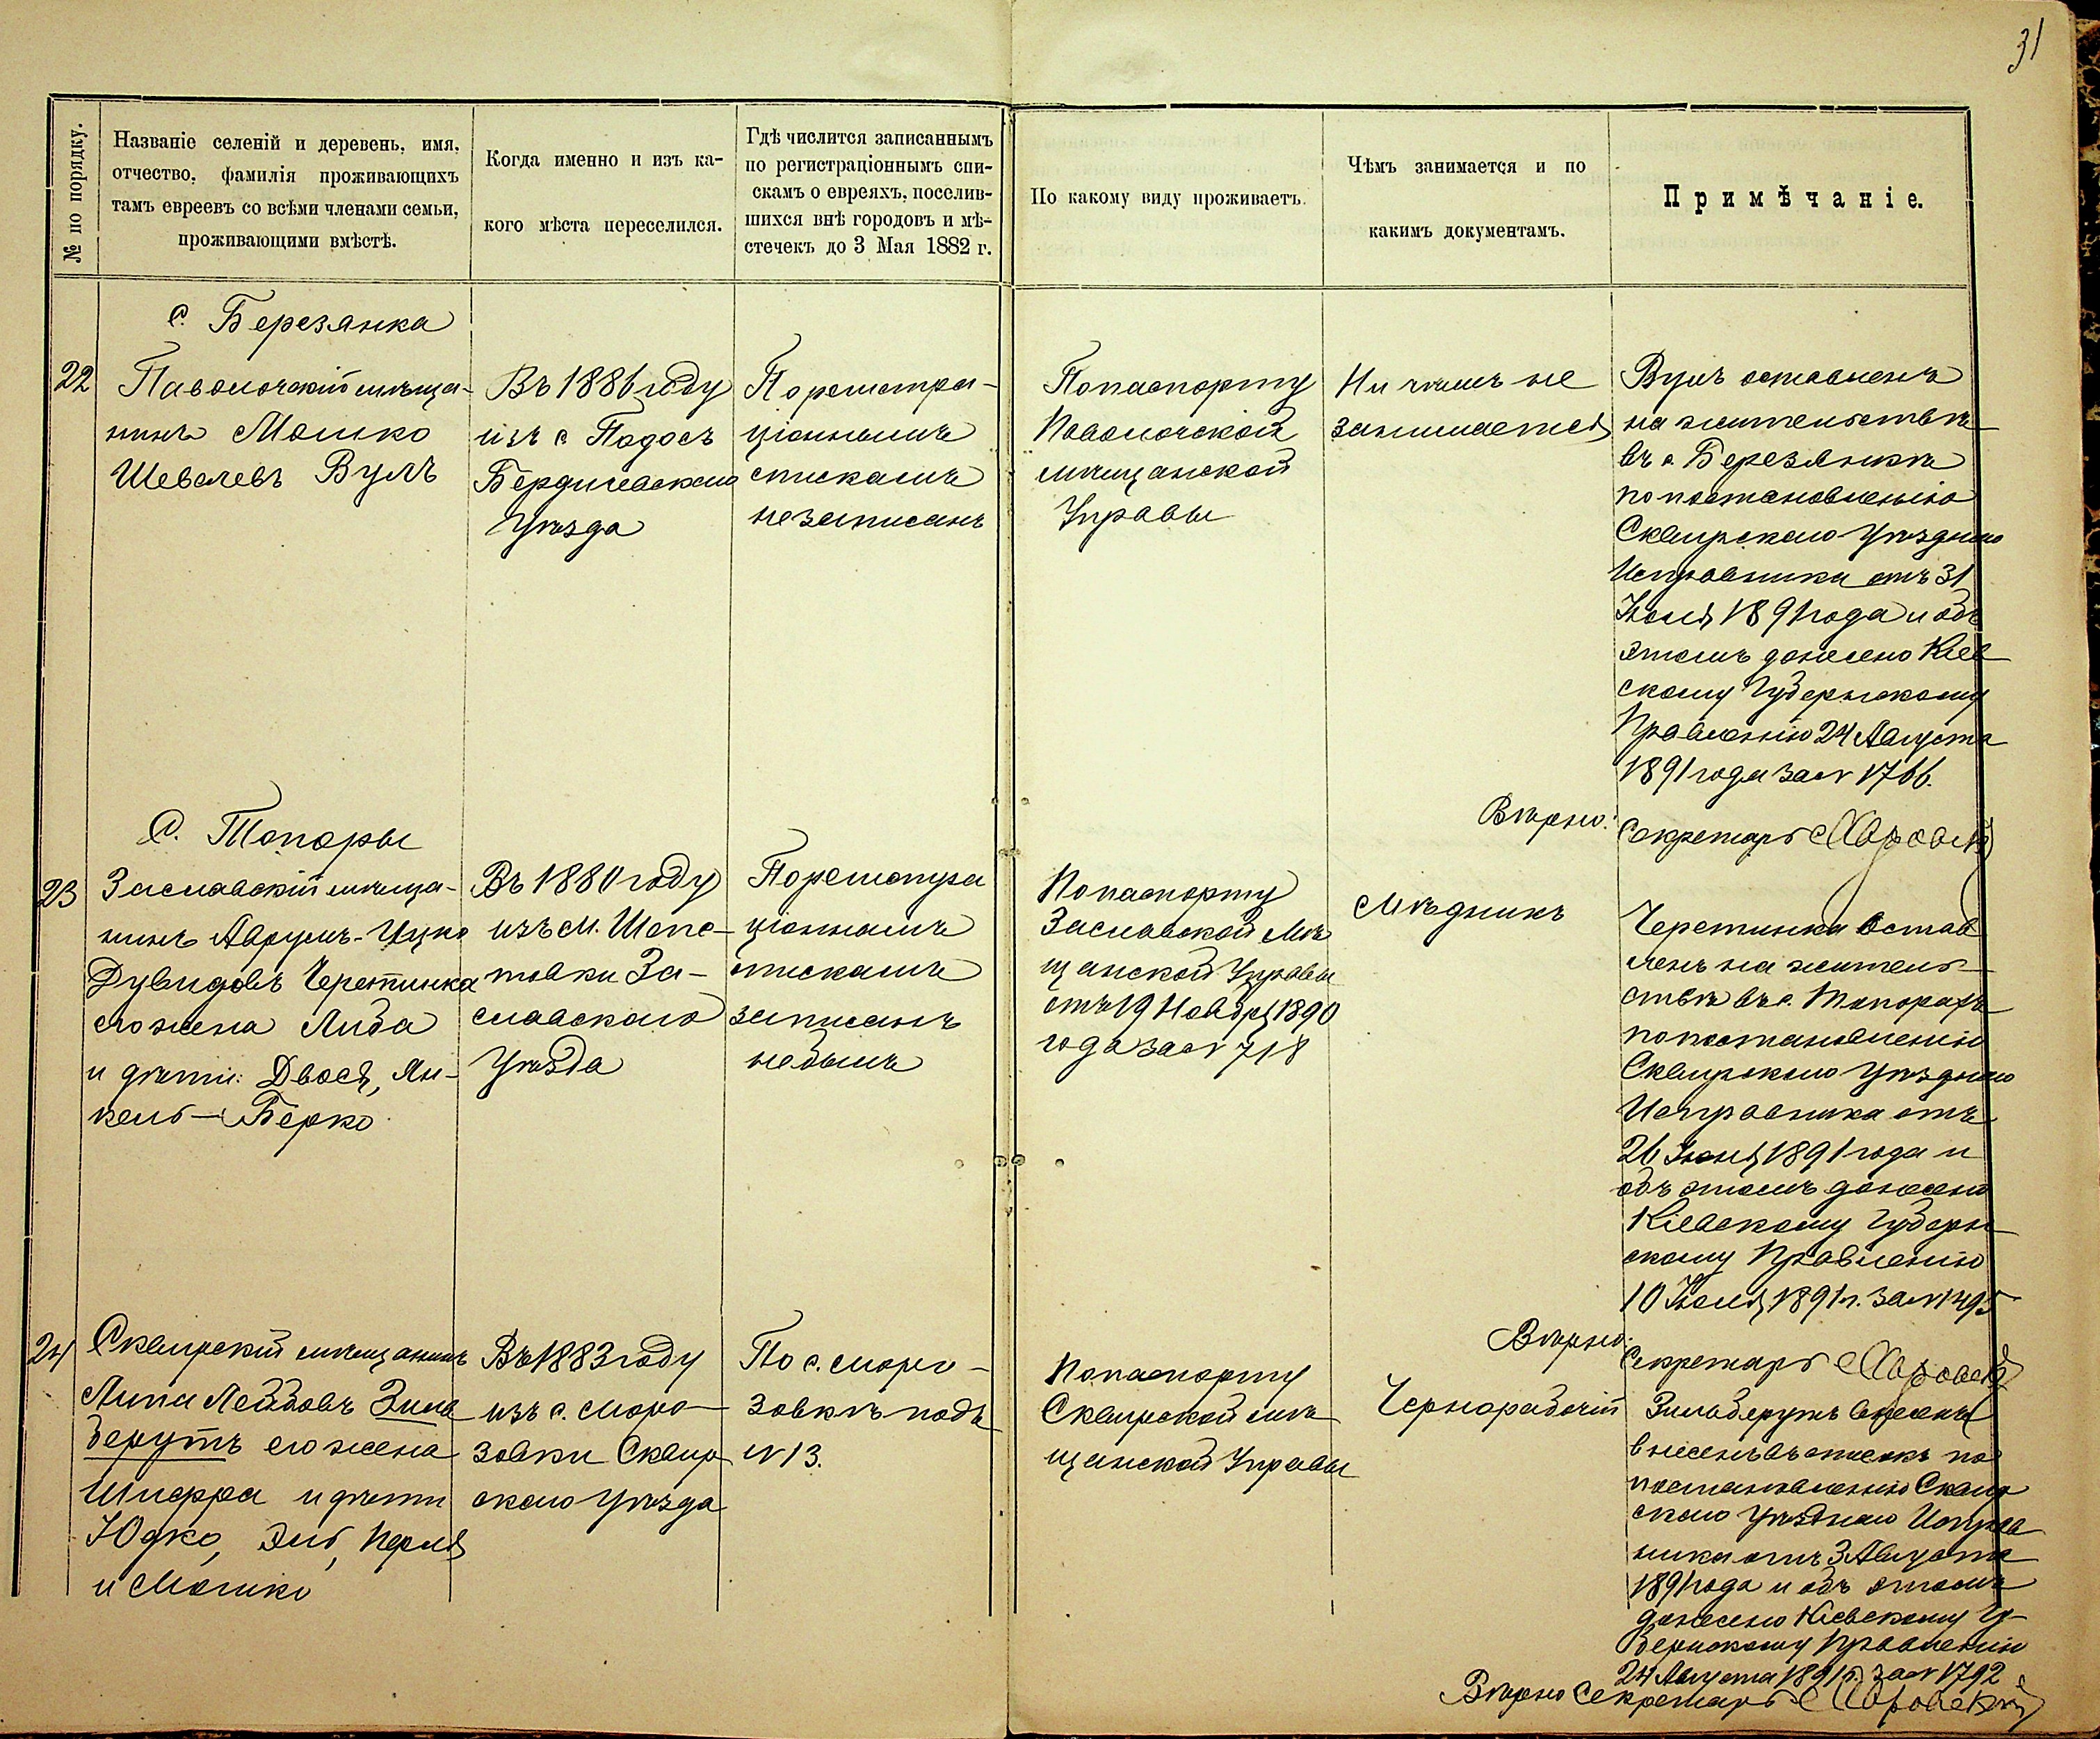 31
№ по порядку.
Названіе селеній и деревень, имя,
отчество, фамилія проживающихъ
тамъ евреевъ со всѣми членами семьи,
проживающими вмѣстѣ.
Когда именно и изъ ка-
кого мѣста переселился.
Гдѣ числится записаннымъ
по регистраціоннымъ спи-
скамъ о евреяхъ, поселив-
шихся внѣ городовъ и мѣ-
стечекъ до 3 Мая 1882 г.
По какому виду проживаетъ.
Чѣмъ занимается и по
какимъ документамъ.
Примѣчаніе.
с. Березянка
22
Паволочскій мѣща-
нинъ Мошко
Шевелевъ Вулъ
Въ 1886 году
изъ с Падосъ
Бердичевскаго
Уѣзда
По регистра-
ціоннымъ
спискамъ
незаписанъ
По паспорту
Паволочской
мѣщанской
Управы
Ни чѣмъ не
занимается
Вулъ оставленъ
на жительствѣ
въ с. Березянкѣ
по постановленію
Сквирскаго Уѣзднаго
Исправника отъ 31
Іюля 1891 года и объ
этомъ донесено Кіев
скому Губернскому
Правленію 24 Августа
1891 года за № 1766.
Вѣрно:
Секретарь
С. Топоры
23
Заславскій мѣща-
нинъ Аврумъ-Ицко
Дувидовъ Черетинка
его жена Либа
и дѣти: Двося, Ян-
кель-Берко
Въ 1880 году
изъ м. Шепе-
товки За-
славскаго
Уѣзда
По регистра
ціоннымъ
спискамъ
записанъ
небылъ
По паспорту
Заславской Мѣ
щанской Управы
отъ 19 Ноября 1890
года за № 718
Мѣдникъ
Черетинка Остав
ленъ на житель-
ствѣ въ с. Топорахъ
по постановленію
Сквирскаго Уѣзднаго
Исправника отъ
26 Іюня 1891 года и
объ этомъ донесено
Кіевскому Губерн-
скому Правленію
10 Іюля 1891 г. за № 1495
Вѣрно:
Секретарь
24
Сквирскій мѣщанинъ
Липа Лейбовъ Зиль
берутъ его жена
Шифра и дѣти
Юдко, Эль, Перля
и Мошко
Въ 1883 году
изъ с. Моро-
зовки Сквир
скаго Уѣзда
По с. Моро-
зовкѣ подъ
№ 13.
По паспорту
Сквирской мѣ
щанской Управы
Чернорабочій
Зильберутъ
внесенъ въ списокъ по
постановленію Сквир
скаго Уѣзднаго Исправ
ника отъ 3 Августа
1891 года и объ этомъ
донесено Кіевскому Гу-
бернскому Правленію
24 Августа 1891 г. за № 1792
Вѣрно Секретарь